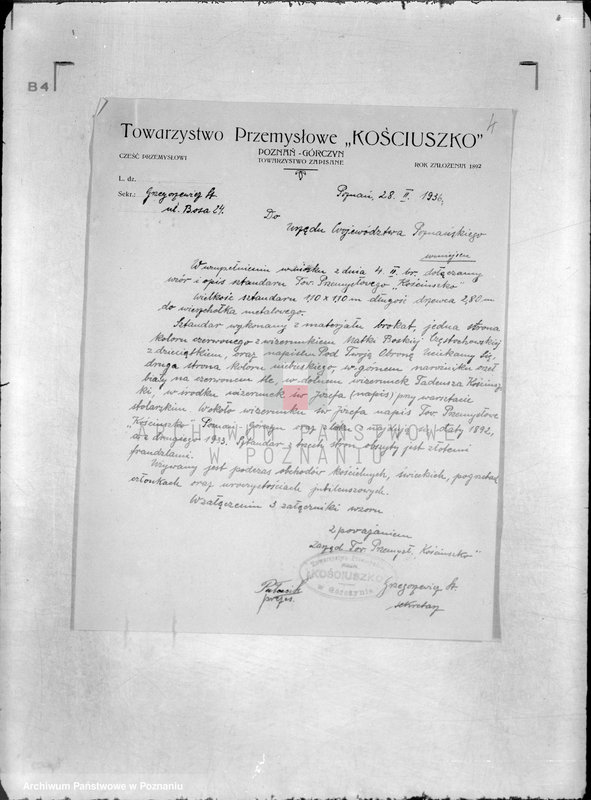 B4
4
Towarzystwo Przemysłowe „KOŚCIUSZKO”
POZNAŃ-GÓRCZYN
TOWARZYSTWO ZAPISANE
CZEŚĆ PRZEMYSŁOWI
ROK ZAŁOŻENIA 1892
L. dz.
Sekr.: Grzegorzewicz St.
ul. Bosa 24.
Poznań, 28. II. 1936.
Do
Urzędu Województwa Poznańskiego
w miejscu
W uzupełnieniu wniosku z dnia 4. II. br. dołączamy
wzór i opis sztandaru Tow Przemysłowego Kościuszko"
Wielkość sztandaru 110 x 110 m długość drzewca 2,80 m
do wierzchołka metalowego.
Sztandar wykonany z materjału brokat, jedna strona
koloru czerwonego z wizerunkiem Matki Boskiej Częstochowskiej
z dzieciątkiem, oraz napisem Pod Twoją Obronę Uciekamy Się,
druga strona koloru niebieskiego, w górnem narożniku orzeł
biały na czerwonem tle, w dolnem wizerunek Tadeusza Kościusz
ki, w środku wizerunek św Józefa (napis) przy warsztacie
stolarskim. Wokoło wizerunku św Józefa napis Tow Przemysłowe
"Kościuszko" Poznań-Górczyn oraz z boku najdują się daty 1892,
a z drugiego 1933. Sztandar z trzech stron obszyty jest złotemi
frandzlami.
Używany jest podczas obchodów kościelnych, świeckich, pogrzebach
członkach oraz uroczystościach jubileuszowych.
W załączeniu 3 załączniki wzoru
z poważaniem
Zarząd Tow. Przemysł. Kościuszko"
Towarzystwo
KOŚCIUSZKO
w Górczynie
prezes
Grzegorzewicz St.
sekretarz
ARCHIWUM PAŃSTWOWE
W POZNANIU
Archiwum Państwowe w Poznaniu